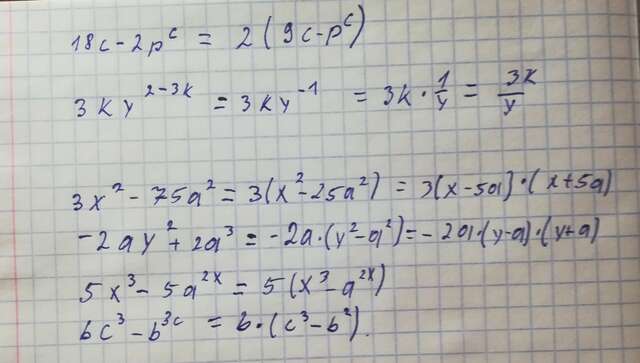 18c - 2p^c = 2(9c - p^c)
3ky^{2-3k} = 3ky^{-1} = 3k · 1/y = 3k/y
3x² - 75a² = 3(x² - 25a²) = 3(x - 5a)·(x + 5a)
-2ay² + 2a³ = -2a·(y² - a²) = -2a·(y-a)·(y+a)
5x³ - 5a^{2x} = 5(x³ - a^{2x})
bc³ - b^{3c} = b·(c³ - b²).